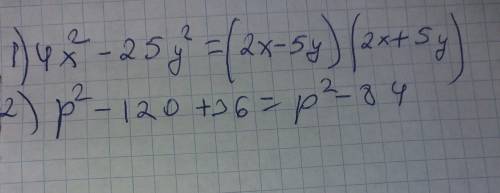 1) 4x² - 25y² = (2x - 5y)(2x + 5y)
2) p² - 120 + 36 = p² - 84